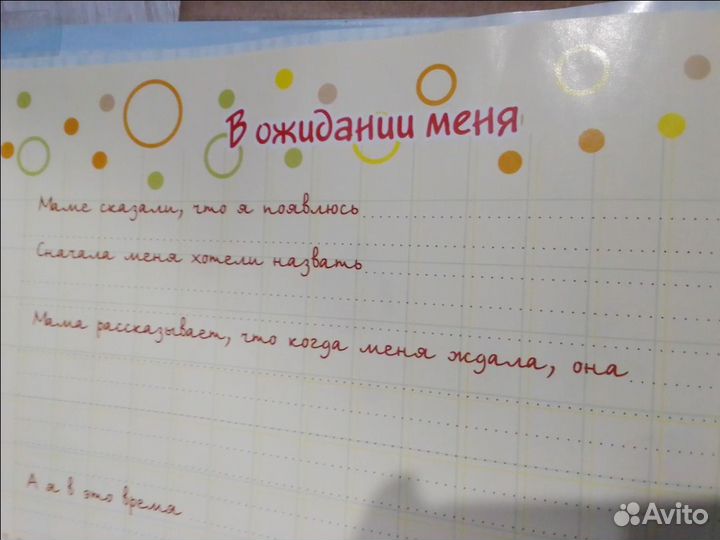 В ожидании меня
Маме сказали, что я появлюсь
Сначала меня хотели назвать
Мама рассказывает, что когда меня ждала, она
А я в это время
Avito